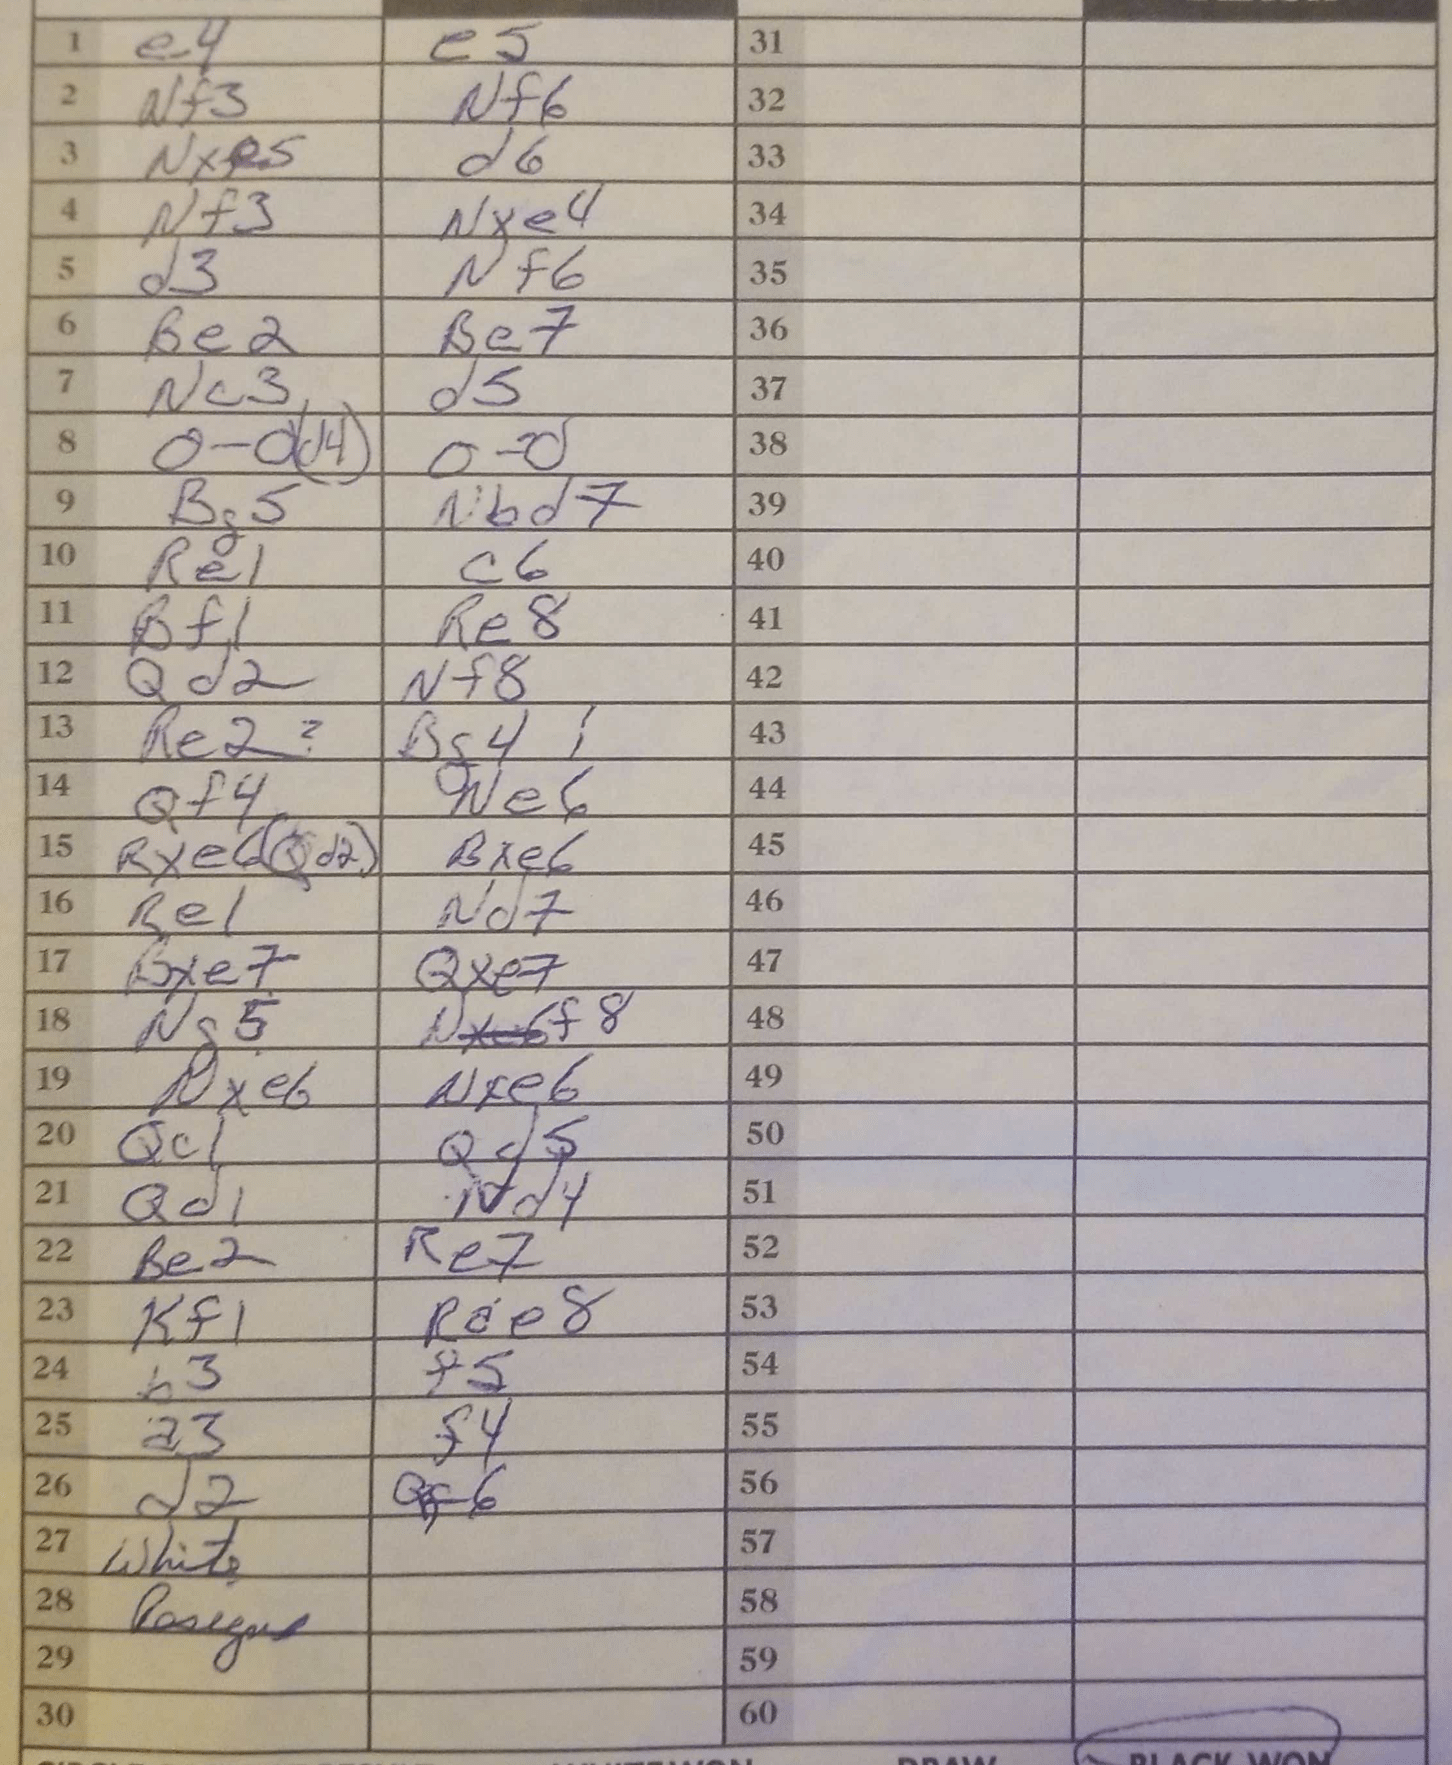 1 e4 e5 31
2 Nf3 Nf6 32
3 Nxe5 d6 33
4 Nf3 Nxe4 34
5 d3 Nf6 35
6 Be2 Be7 36
7 Nc3 d5 37
8 O-O(d4) O-O 38
9 Bg5 Nbd7 39
10 Re1 c6 40
11 Bf1 Re8 41
12 Qd2 Nf8 42
13 Re2? Bg4! 43
14 Qf4 Ne6 44
15 Rxe6(Qd2) Bxe6 45
16 Re1 Nd7 46
17 Bxe7 Qxe7 47
18 Ng5 Nf8 48
19 Nxe6 Nxe6 49
20 Qc1 50
21 Qd1 Nd4 51
22 Be2 Re7 52
23 Kf1 Rae8 53
24 b3 f5 54
25 a3 f4 55
26 d2 56
27 White 57
28 58
29 59
30 60
DRAW BLACK WON